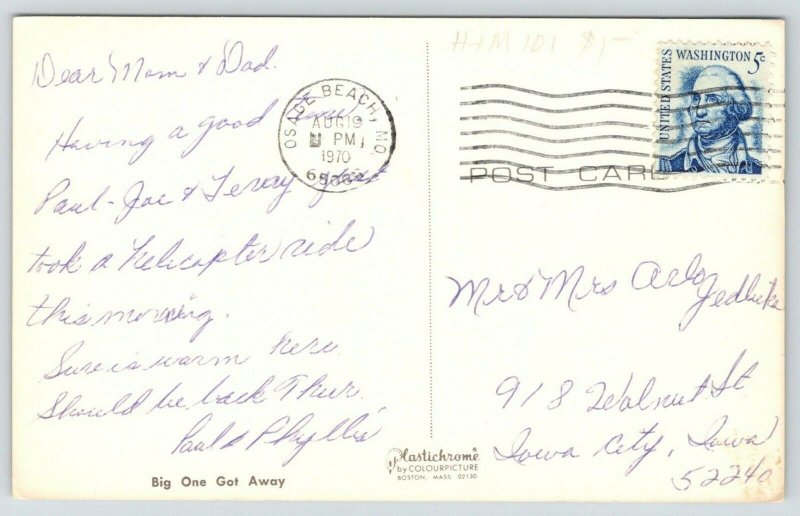 Dear Mom & Dad.
Having a good time
Paul-Joe & Terry just
took a helicopter ride
this morning.
Sure is warm here
Should be back Thur.
Paul & Phyllis
Big One Got Away
OSAGE BEACH, MO.
AUG 19
PM
1970
H+M 101 $1-
UNITED STATES
WASHINGTON 5c
POST CARD
Mr & Mrs Arlo
918 Walnut St
Iowa City, Iowa
52240
Plastichrome
by COLOURPICTURE
BOSTON, MASS 02130